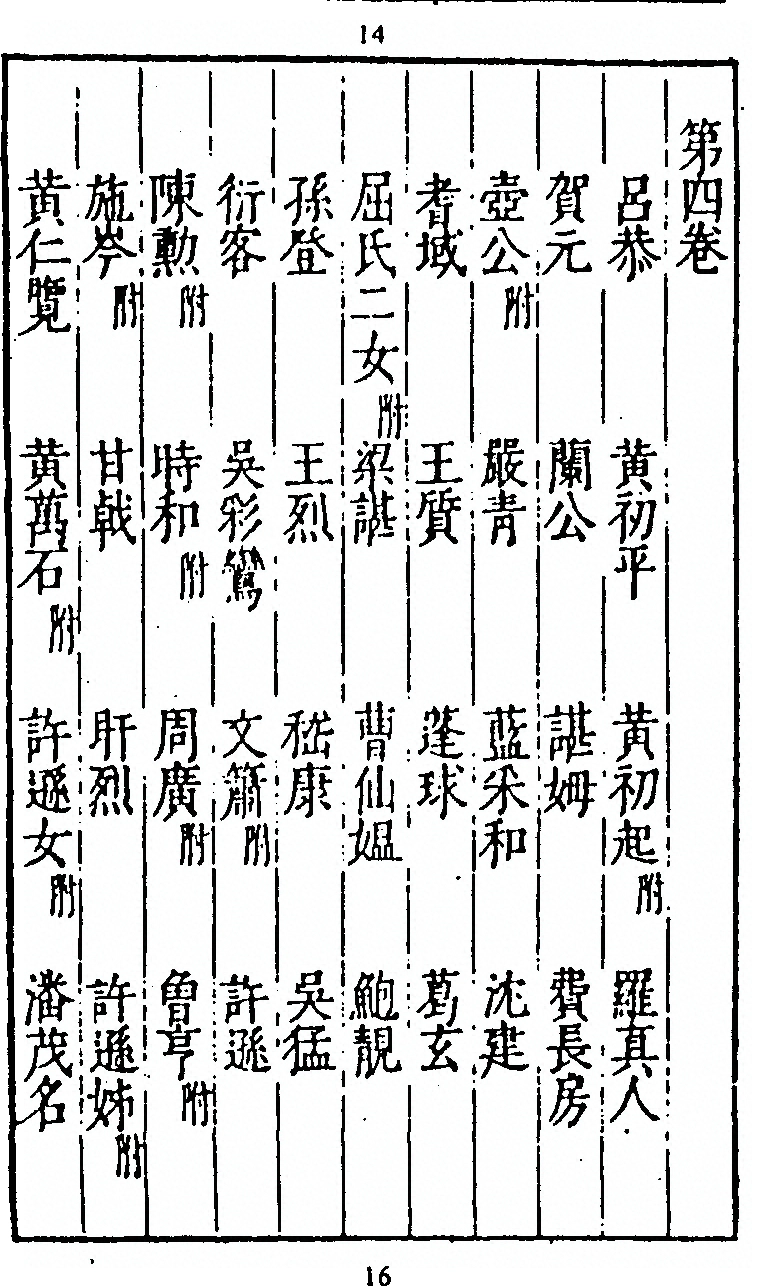 14
第四卷
呂恭 黃初平 黃初起附 羅真人
賀元 蘭公 諶姆 費長房
壺公附 嚴青 藍采和 沈建
耆域 王質 蓬球 葛玄
屈氏二女附 梁諶 曹仙媼 鮑靚
孫登 王烈 嵇康 吳猛
衍客 吳彩鸞 文簫附 許遜
陳勳附 時和附 周廣附 曾亨附
施岑附 甘戟 盱烈 許遜姊附
黃仁覽 黃萬石附 許遜女附 潘茂名
16